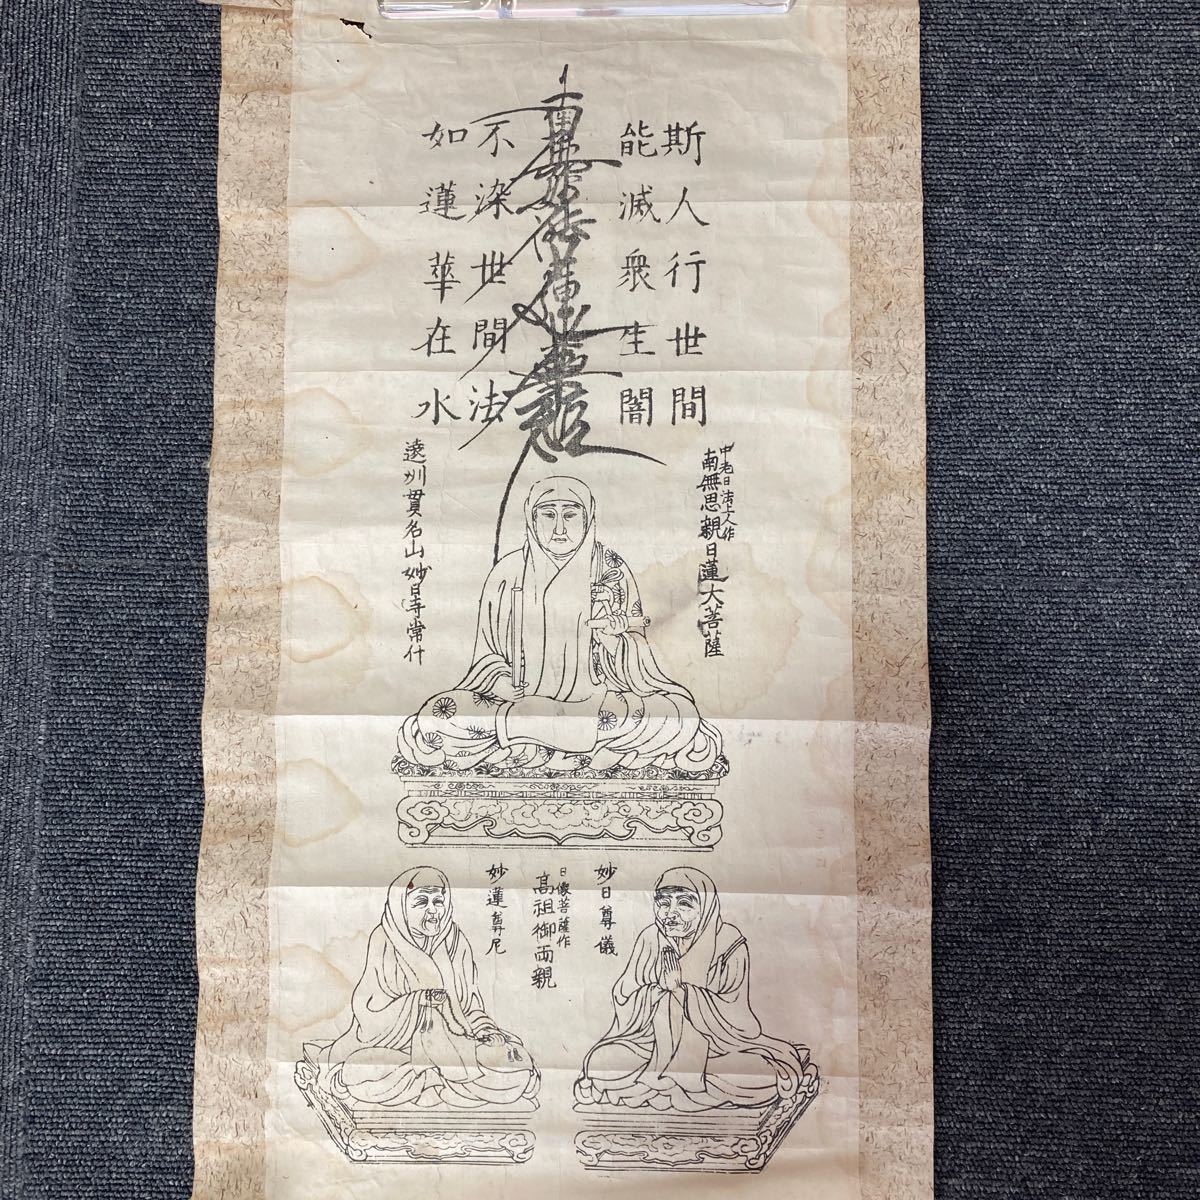 斯人行世間
能滅衆生闇
南無妙法蓮華經
不染世間法
如蓮華在水
中老日法上人作
南無思親日蓮大菩薩
遠州貫名山妙日寺常什
妙日尊儀
日像菩薩作
高祖御両親
妙蓮尊尼